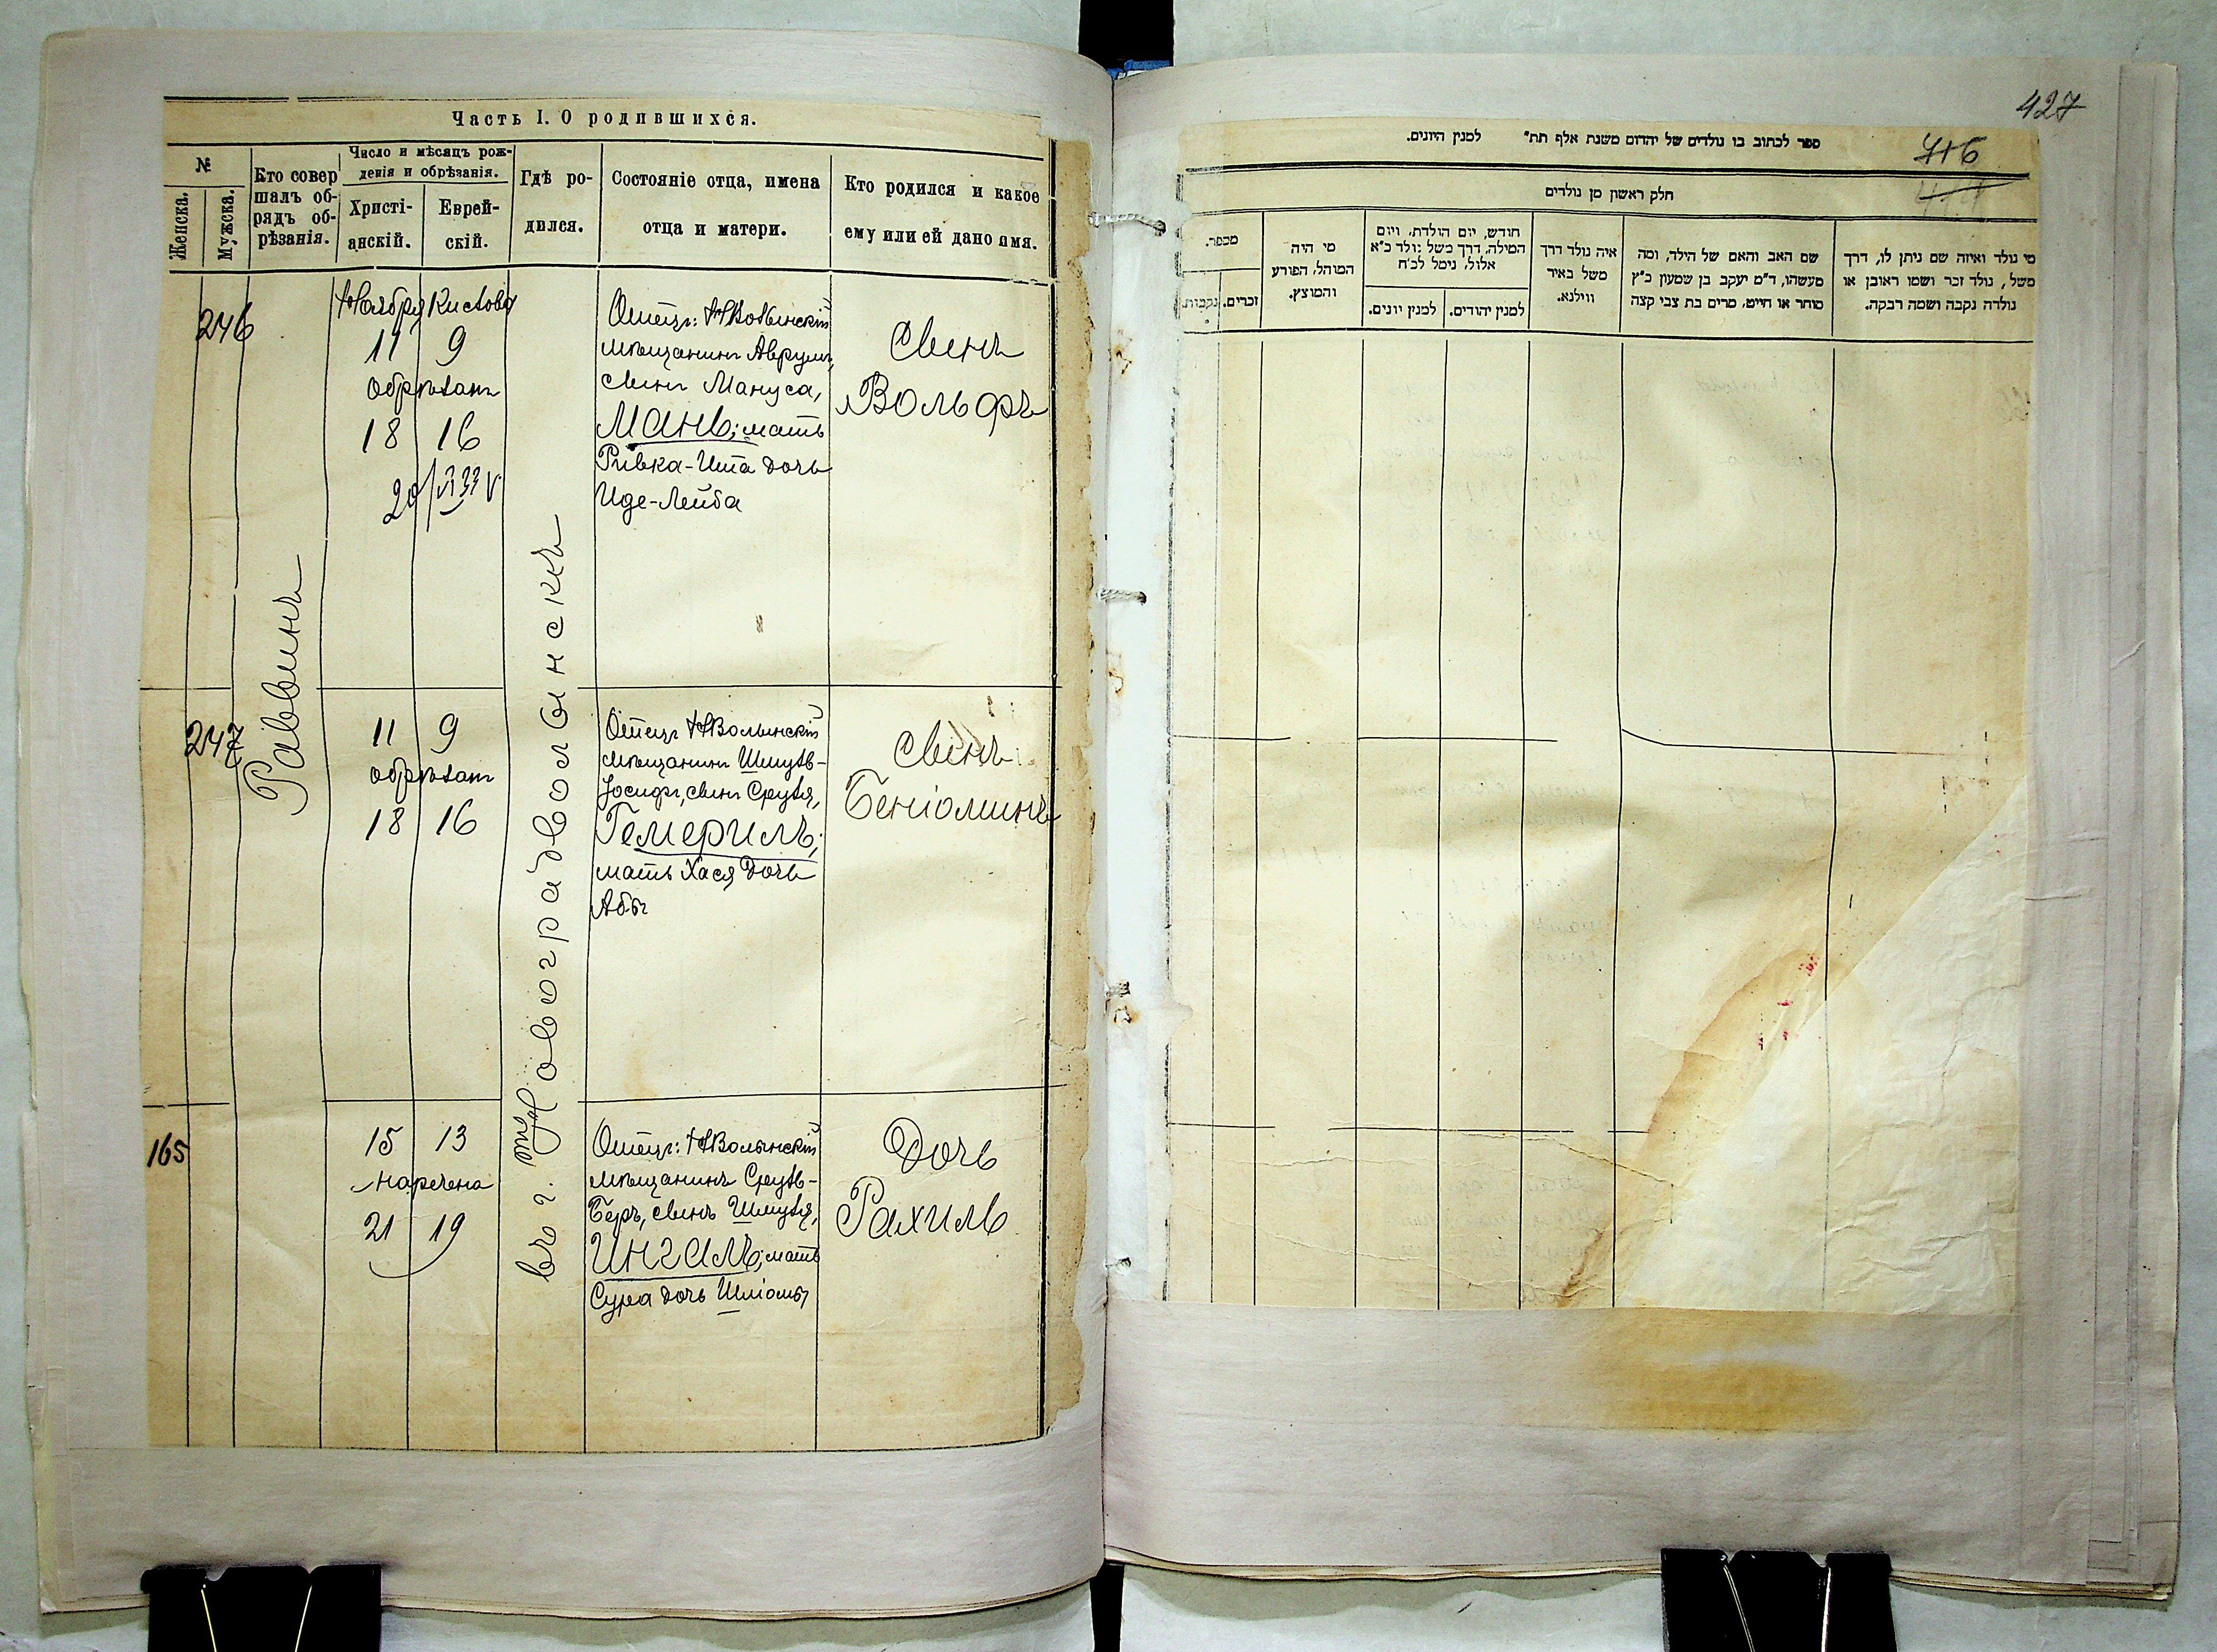 Часть I. О родившихся.
№
Женска.
Мужска.
Кто совер
шалъ об-
рядъ об-
рѣзанія.
Число и мѣсяцъ рож-
денія и обрѣзанія.
Христі-
анскій.
Еврей-
скій.
Гдѣ ро-
дился.
Состояніе отца, имена
отца и матери.
Кто родился и какое
ему или ей дано имя.
Раввинъ
въ г. Новоградволынскѣ
246
Ноября Кислова
11 9
обрѣзанъ
18 16
Отецъ: НВолынскій
мѣщанинъ Аврумъ,
сынъ Мануса,
Мань; мать
Ривка-Ита дочь
Иде-Лейба
Сынъ
Вольфъ
247
11 9
обрѣзанъ
18 16
Отецъ НВолынскій
мѣщанинъ Шмуль-
Іосифъ, сынъ Сруля,
Гемериль;
мать Хася дочь
Абы
Сынъ
Беніоминъ
165
15 13
наречена
21 19
Отецъ: НВолынскій
мѣщанинъ Сруль-
Беръ, сынъ Шмуля,
Ингаль; мать
Сура дочь Шліомы
Дочь
Рахиль
427
716
ספר לכתוב בו נולדים של יהדום משנת אלף תת״ למנין היונים.
חלק ראשון מן נולדים
מספר.
זכרים.
נקבות.
מי היה
המוהל, הפורע
והמוצץ.
חודש, יום הולדת, ויום
המילה, דרך משל נולד כ״א
אלול, נימל לכ״ח
למנין יהודים.
למנין יונים.
איה נולד דרך
משל באיר
ווילנא.
שם האב והאם של הילד, ומה
מעשהו, ד״מ יעקב בן שמעון כ״ץ
סוחר או חייט, מרים בת צבי קצה
מי נולד ואיזה שם ניתן לו, דרך
משל, נולד זכר ושמו ראובן או
נולדה נקבה ושמה רבקה.